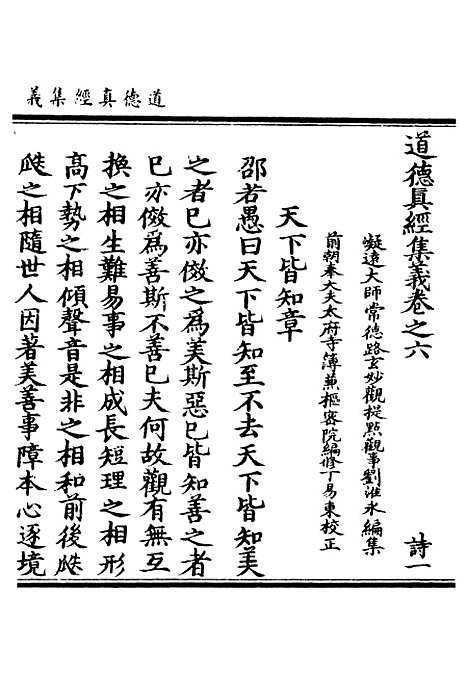 道德真經集義
道德眞經集義卷之六 詩一
凝遠大師常德路玄妙觀提點觀事劉惟永編集
前朝奉大夫太府寺簿兼樞密院編修丁易東校正
天下皆知章
邵若愚曰天下皆知至不去天下皆知美
之者已亦倣之爲美斯惡已皆知善之者
已亦倣爲善斯不善已夫何故觀有無互
換之相生難易事之相成長短理之相形
高下勢之相傾聲音是非之相和前後
之相隨世人因著美善事障本心逐境